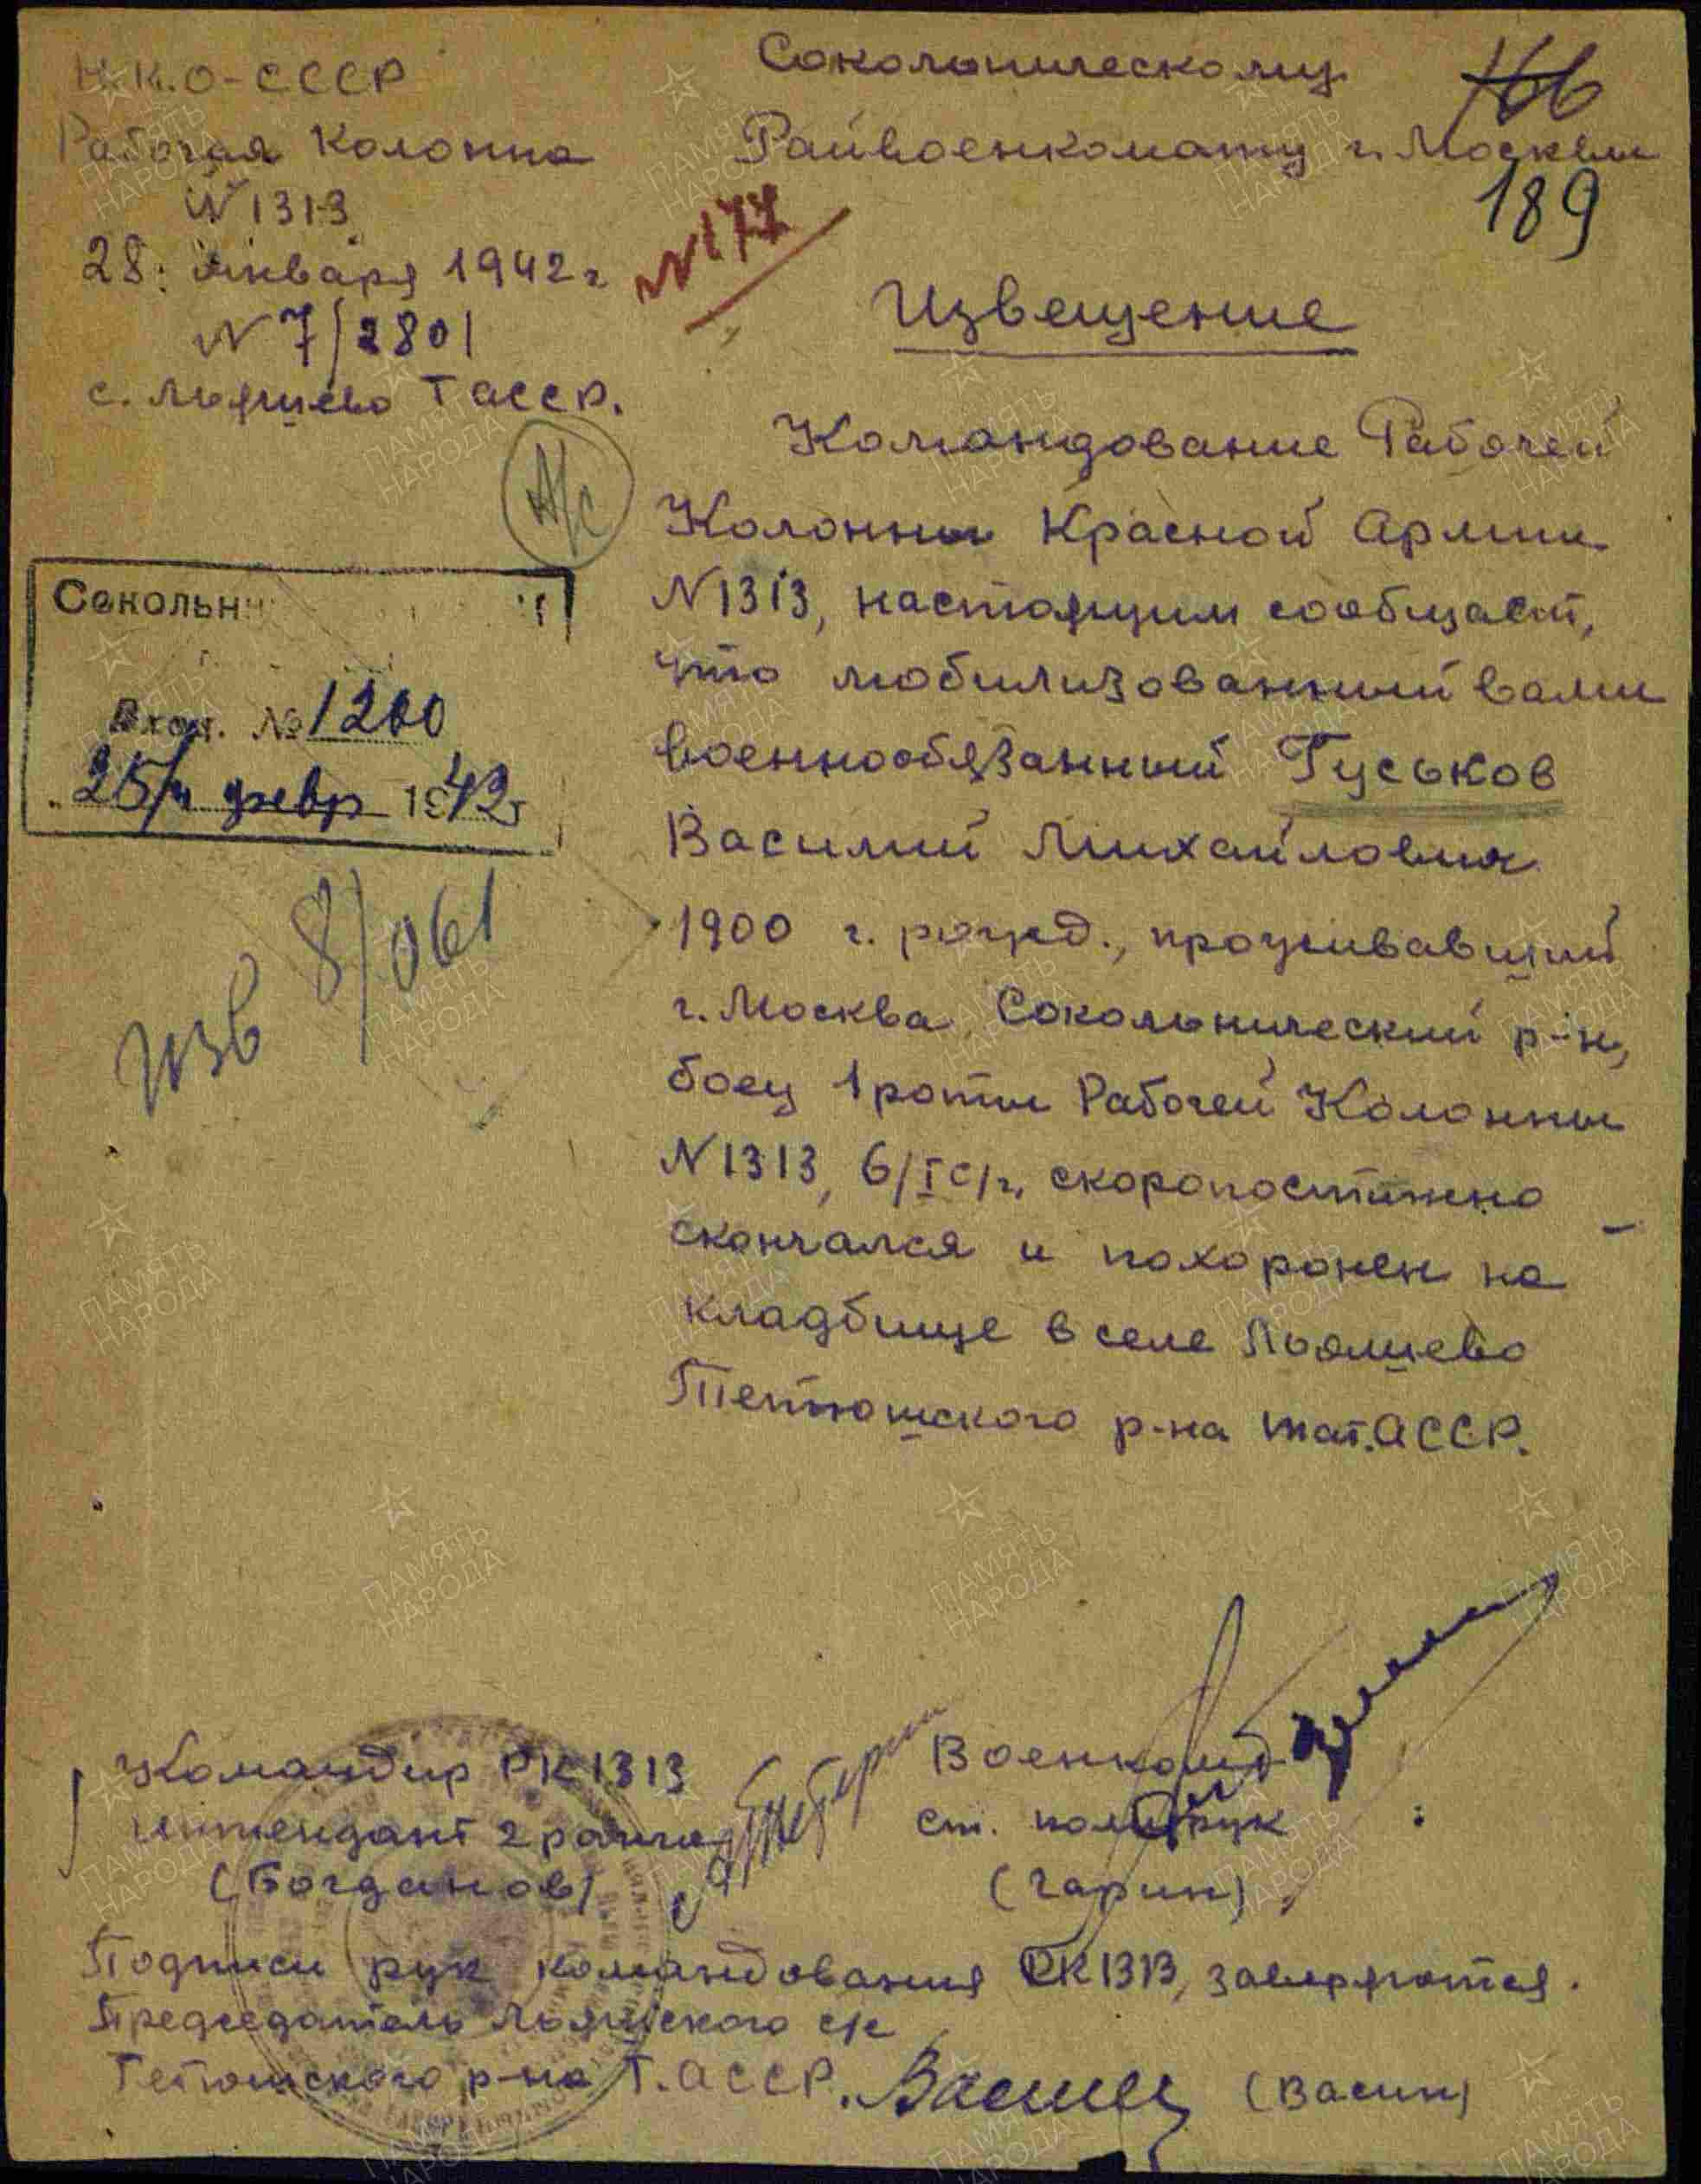 Н.К.О-СССР
Рабочая Колонна
N 1313
28. января 1942 г
N 7/2801
с. Льяшево ТАССР.
Сокольническому
Райвоенкомату г. Москвы
189
N 177
Извещение
А/с
Сокольни
Вход. № 1200
25/II февр 1942 г
Изв 8/061
Командование Рабочей
Колонны Красной Армии
N 1313, настоящим сообщает,
что мобилизованный вами
военнообязанный Гуськов
Василий Михайлович
1900 г. рожд., проживавший
г. Москва Сокольнический р-н,
боец 1 роты Рабочей Колонны
N 1313, 6/I с/г, скоропостижно
скончался и похоронен на
кладбище в селе Льяшево
Тетюшского р-на Тат.АССР.
Командир РК 1313
интендант 2 ранга
(Богданов)
Военком
ст. политрук
(Гарин)
Подписи рук командования РК 1313, заверяются.
Председатель Льяшского с/с
Тетюшского р-на Т.АССР. Васин (Васин)
ПАМЯТЬ
НАРОДА